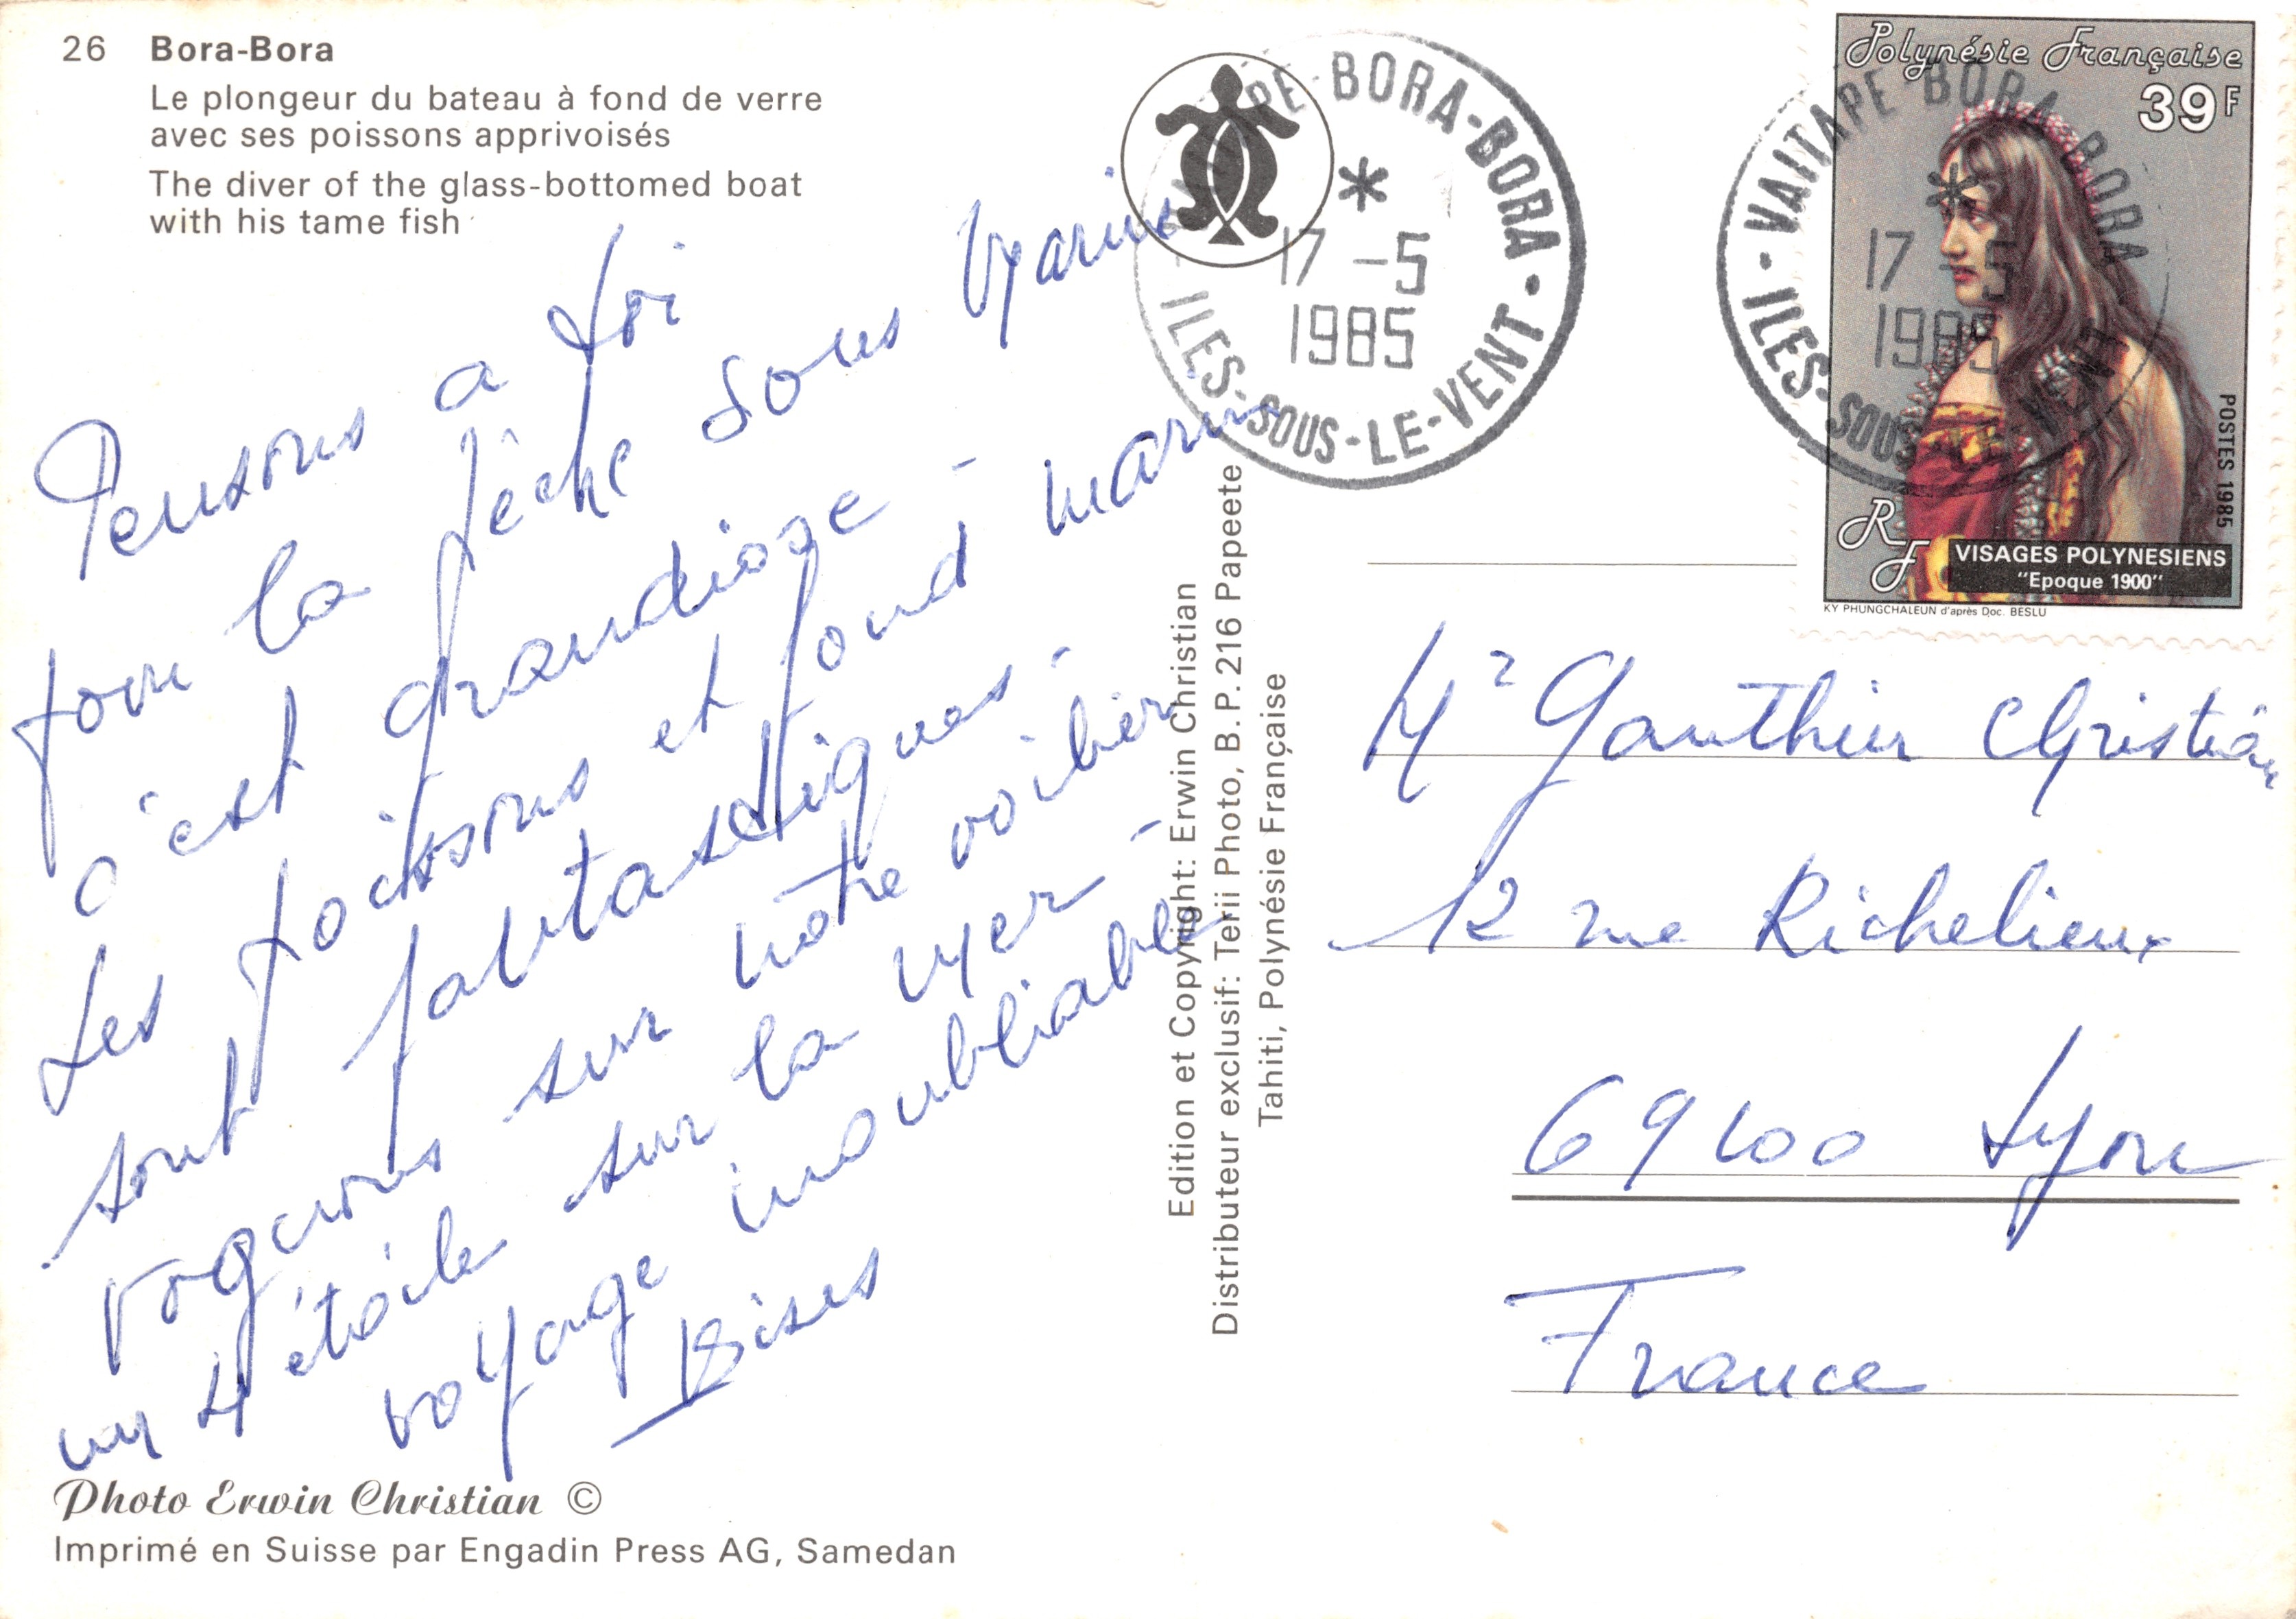 26 Bora-Bora
Le plongeur du bateau à fond de verre
avec ses poissons apprivoisés
The diver of the glass-bottomed boat
with his tame fish
Pensons a toi
pour la pêche sous Marine
c'est grandiose -
Les poissons et fond marins
sont fantastiques -
voguons sur notre voilier
un 4 étoile sur la mer -
voyage inoubliable
Bises
Photo Erwin Christian ©
Imprimé en Suisse par Engadin Press AG, Samedan
Edition et Copyright: Erwin Christian
Distributeur exclusif: Terii Photo, B.P. 216 Papeete
Tahiti, Polynésie Française
VAITAPE-BORA-BORA
*
17 -5
1985
ILES-SOUS-LE-VENT
VAITAPE-BORA-BORA
*
17 -5
1985
ILES-SOUS-LE-VENT
Polynésie Française
39F
POSTES 1985
RF
VISAGES POLYNESIENS
"Epoque 1900"
KY PHUNGCHALEUN d'après Doc. BESLU
Mr Gauthier Christian
12 rue Richelieu
69100 Lyon
France